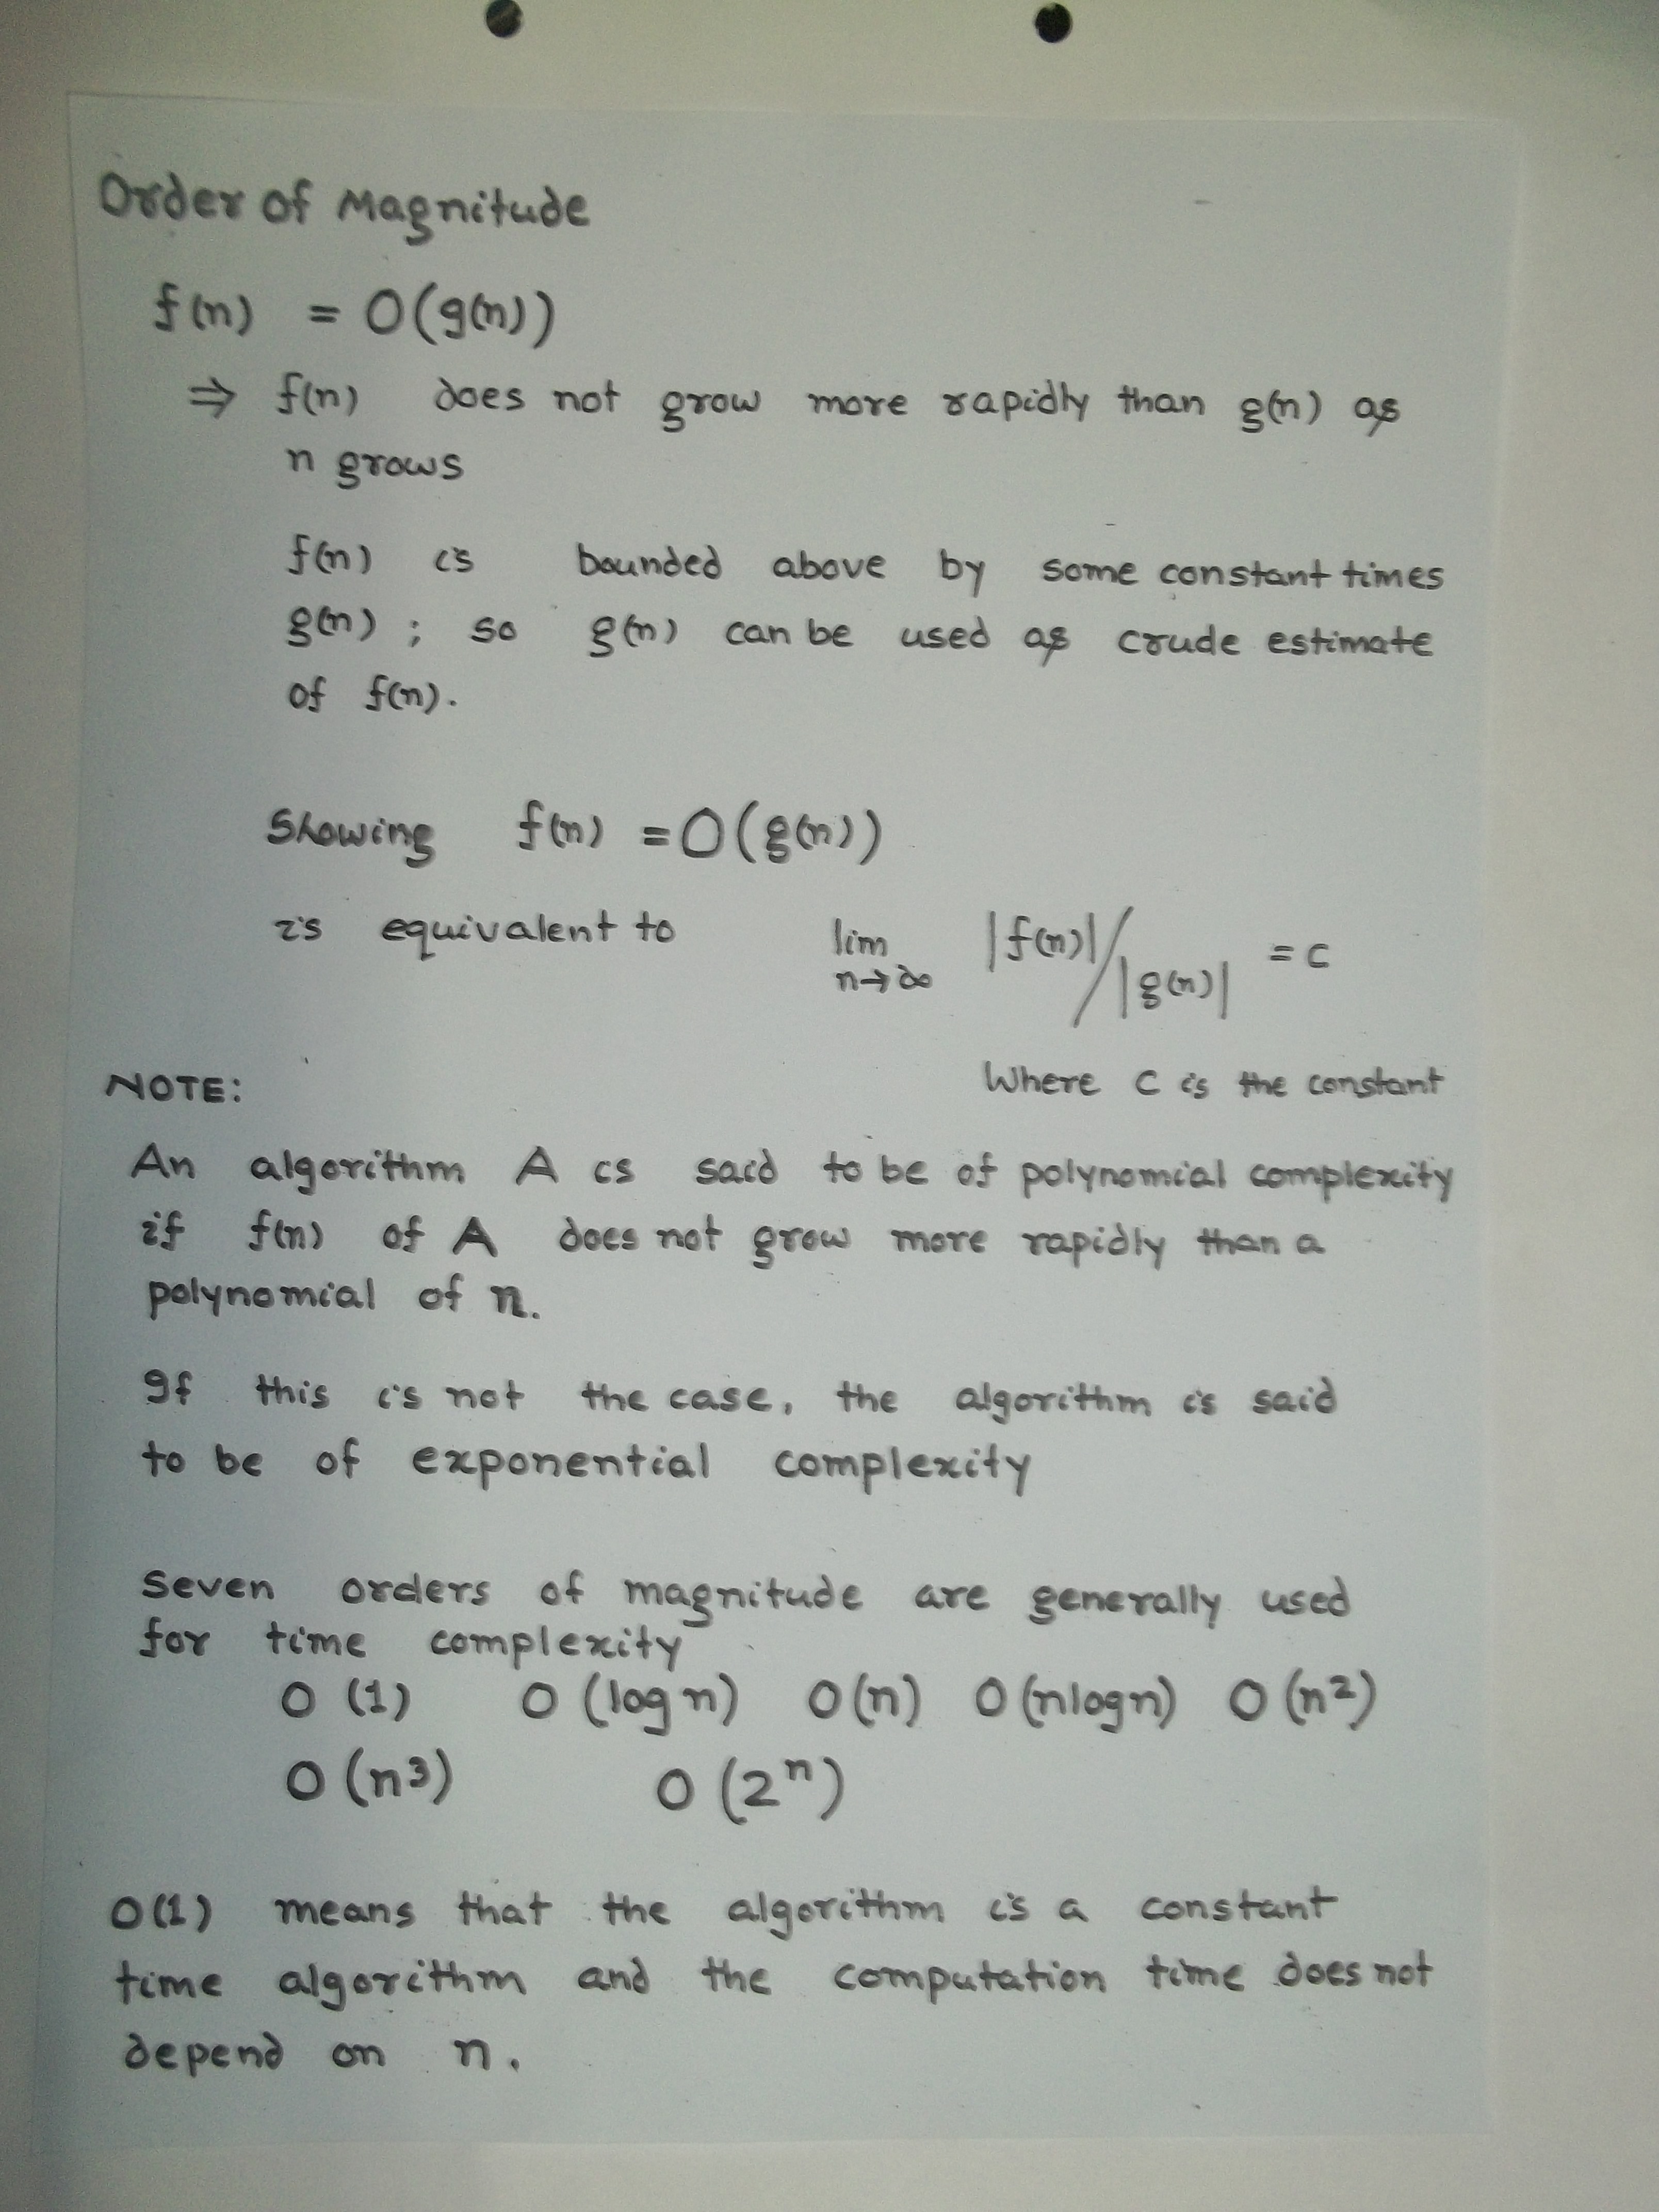 Order of Magnitude
f(n) = O(g(n))
⇒ f(n) does not grow more rapidly than g(n) as
n grows
f(n) is bounded above by some constant times
g(n) ; so g(n) can be used as crude estimate
of f(n).
Showing f(n) = O(g(n))
is equivalent to lim n→∞ |f(n)| / |g(n)| = c
Where C is the constant
NOTE:
An algorithm A is said to be of polynomial complexity
if f(n) of A does not grow more rapidly than a
polynomial of n.
If this is not the case, the algorithm is said
to be of exponential complexity
Seven orders of magnitude are generally used
for time complexity
O (1) O (log n) O (n) O (nlogn) O (n²)
O (n³) O (2ⁿ)
O(1) means that the algorithm is a constant
time algorithm and the computation time does not
depend on n.